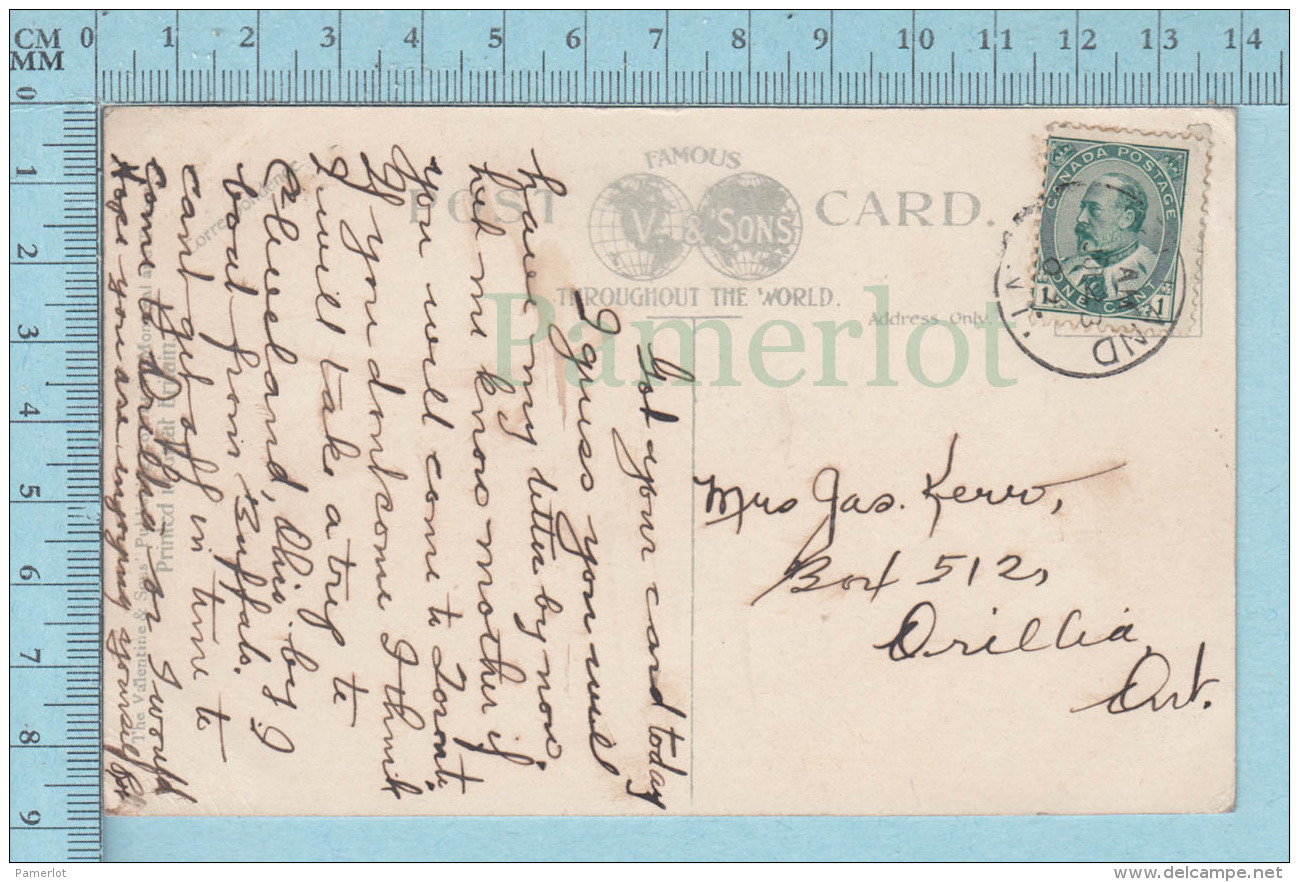 CM 0 1 2 3 4 5 6 7 8 9 10 11 12 13 14
MM
0 1 2 3 4 5 6 7 8 9
FAMOUS
POST CARD.
V. & SONS
THROUGHOUT THE WORLD.
Correspondence
Address Only.
CANADA POSTAGE
1 ONE CENT 1
Pamerlot
Got your card today
I guess you will
have my letter by now.
let me know mother if
you will come to Toronto
If you dont come I think
I will take a trip to
Cleveland, Ohio. by
boat from Buffalo. I
cant get off in time to
come to Orillia or I would
Hope you are enjoying yourself
The Valentine & Sons' Montreal and
Printed in Great Britain.
Mrs Jas. Kerr,
Box 512,
Orillia
Ont.
Pamerlot
www.delcampe.net